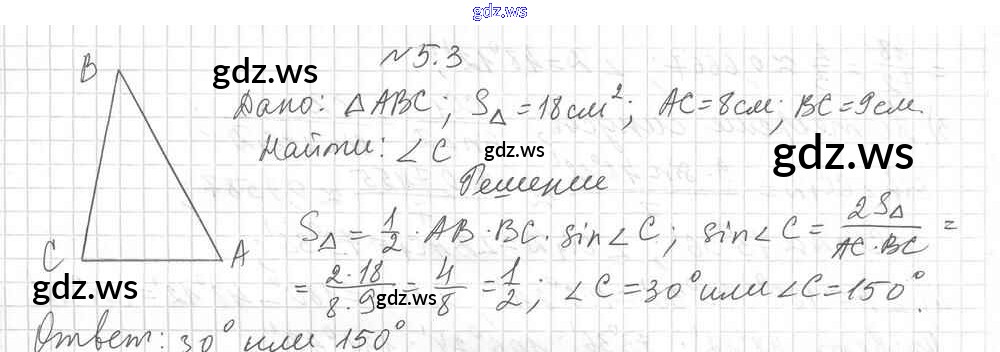 gdz.ws
№5.3
B
gdz.ws
Дано: △ABC; S△=18см²; AC=8см; BC=9см.
Найти: ∠C
gdz.ws
gdz.ws
Решение
S△ = 1/2 · AB · BC · sin∠C; sin∠C = 2S△/AC·BC =
C A
gdz.ws
= 2·18/8·9 = 4/8 = 1/2; ∠C=30° или ∠C=150°.
gdz.ws
Ответ: 30° или 150°